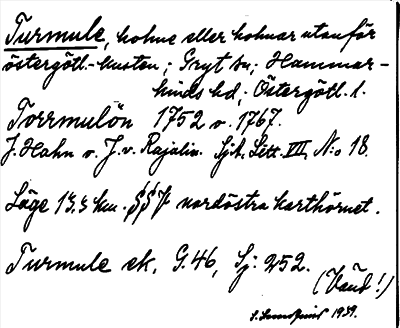 Turmule, holme eller holmar utanför
östergötl.-kusten; Gryt sn; Hammar-
kinds hd; Östergötl. l.
Torrmulön 1752 o. 1767.
J. Hahn o. J. v. Rajalin. Sjk. Sett. VIII, N:o 18.
Läge 13.3 km. nordöstra karthörnet.
Turmule ek. G. 46, Sj: 252.
(Vänd!)
1939.